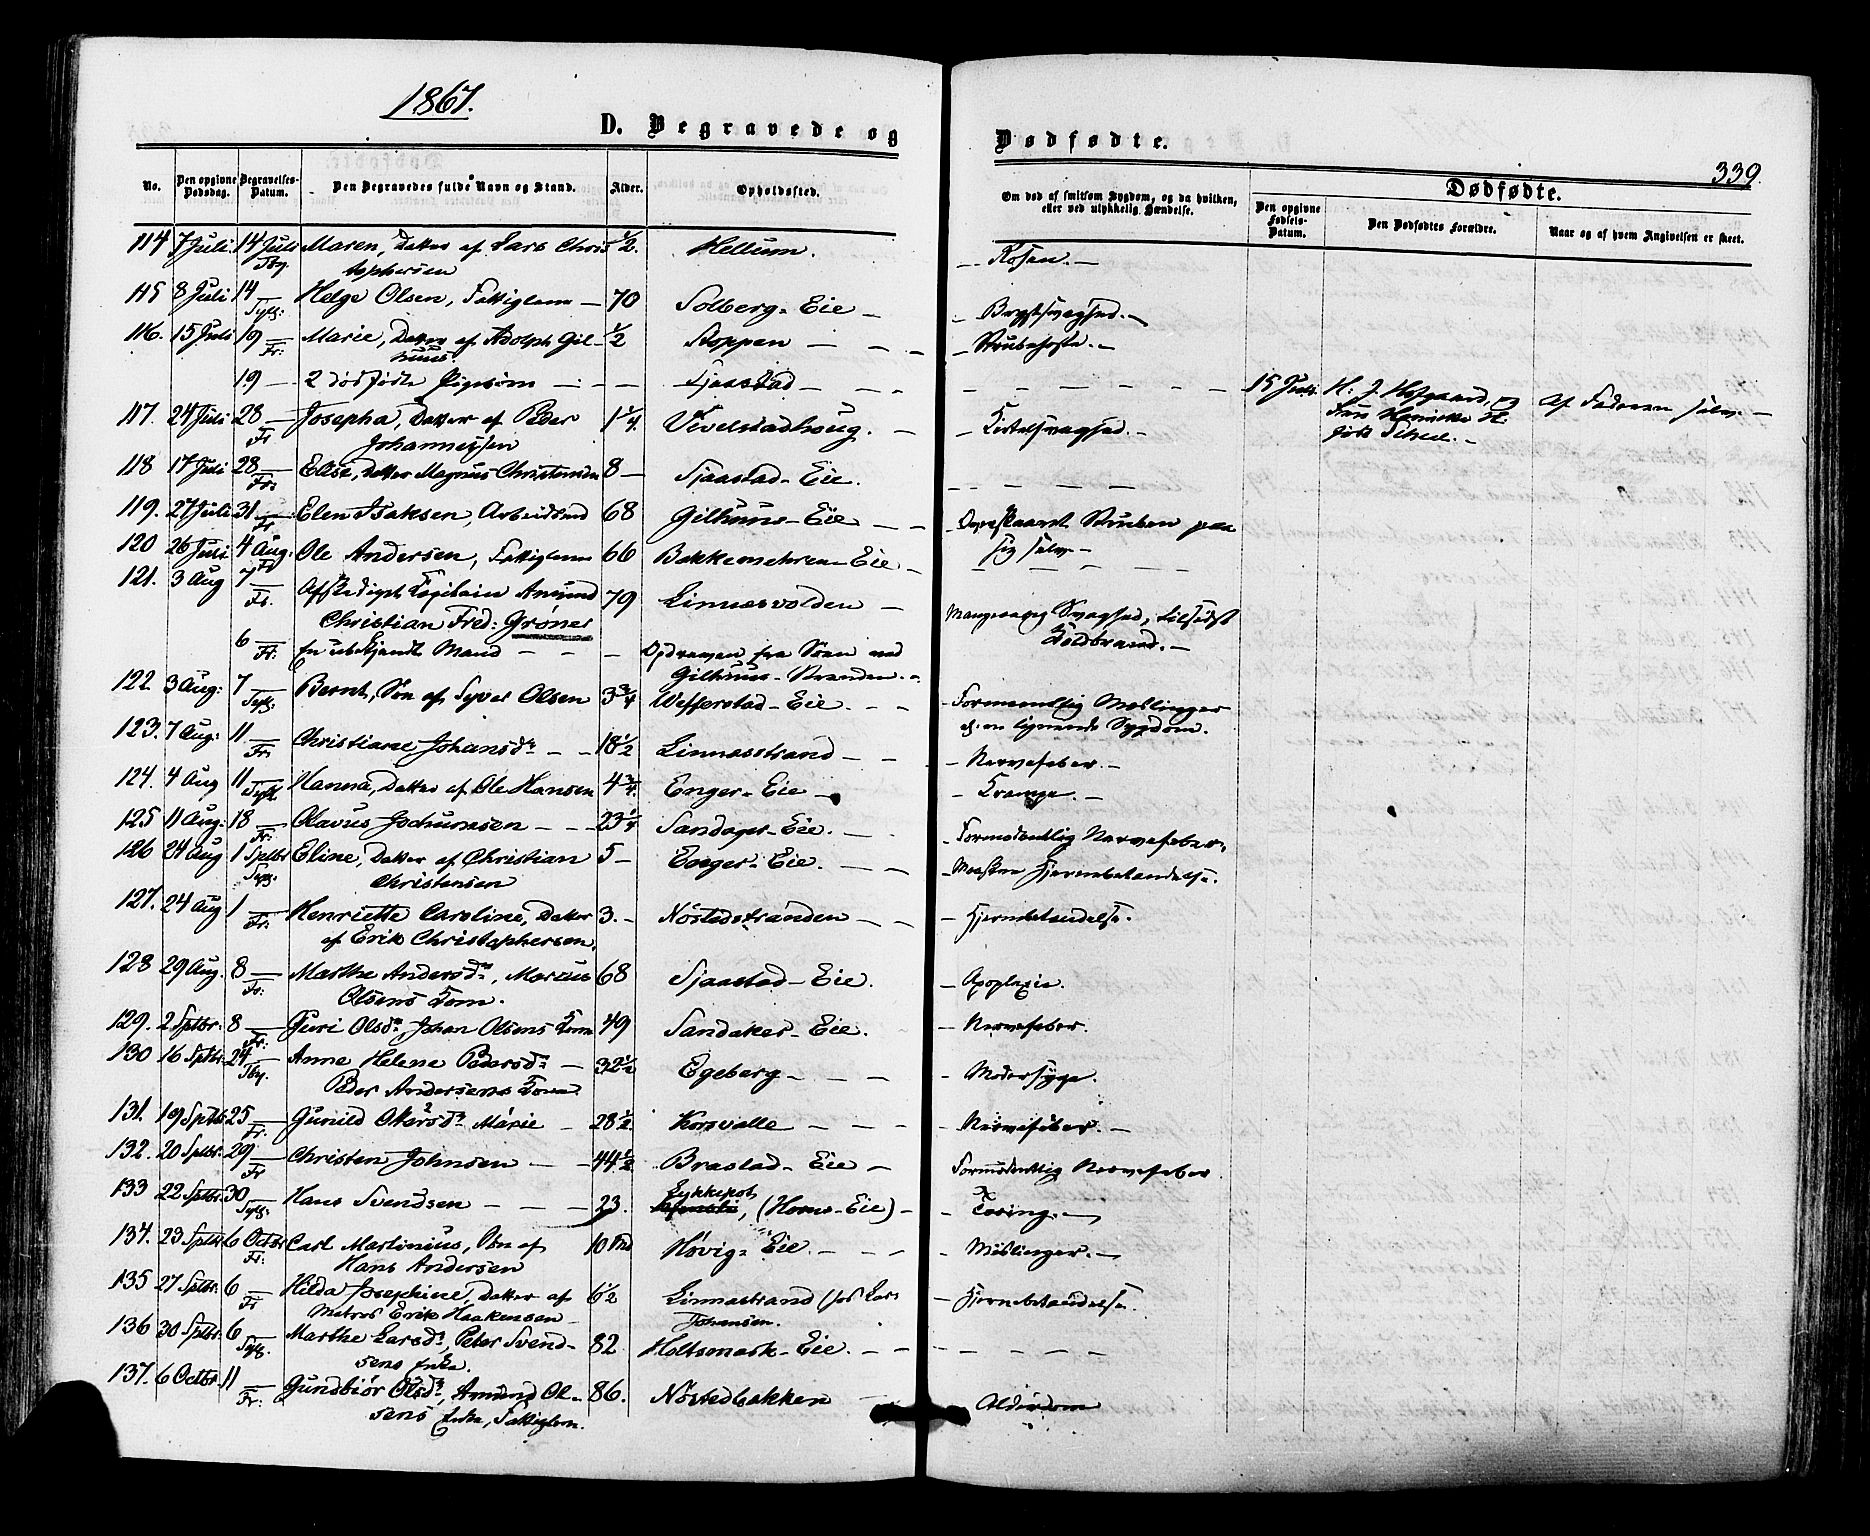 1867.
D. Begravede og
Dødfødte.
339.
No. Den opgivne Dødsdag. Begravelses-Datum. Den Begravedes fulde Navn og Stand. Alder. Opholdssted.
Om død af smitsom Sygdom, og da hvilken, eller ved ulykkelig Hændelse.
Dødfødte.
Den opgivne Fødsels-Datum. Den Dødfødtes Forældre. Naar og af hvem Angivelsen er skeet.
114 7 Juli. 14 Juli Maren, Datter af Lars Chris ½. Hellum. — Rosen. —
Tby. tophersen
115 8 Juli 14 — Helge Olsen, Fattiglem — 70 Solberg-Eie — — Brystsvaghed. —
Sylg:
116. 15 Juli 19 — Marie, Datter af Adolph Gil- ½ Stoppen — — — — Strubehoste. —
Fr: huus.
19 — 2 dødfødte Pigebørn — — — Sjaastad — — — 15 Juli H. J. Hofgaard, og af Faderen selv. —
Fru
117. 24 Juli 28 — Josepha, Datter af Peder 1¼. Vivelstadhoug. — — Kirtelsvaghed. —
Fr Johannessen
118 17 Juli 28 — Elise, Datter Magnus Christensen 8 — Sjaastad-Eie. — — — — —
Fr:
119. 27 Juli 31 — Elen Isaksen, Arbeidsmd 68 Gilhuus-Eie — — Overskaaret Struben paa
Fr sig selv —
120 26 Juli 4 Aug: Ole Andersen, Fattiglem 66 Bakkemehren-Eie — — — — — —
Fr
121. 3 Aug 7 — Afskediget Capitain Amund 79 Linnesvolden — Mangeaarig Svaghed, tilsidst
Fr. Christian Fred: Grøner Koldbrand. —
6 — En ubekjendt Mand — — — Opdreven fra Søen ved
Fr: Gilhuus-Stranden. -
122. 3 Aug: 7 — Bernt, Søn af Syver Olsen 3¾ Wefferstad-Eie. — — — Formeentlig Meslinger
Sylg. el: en lignende Sygdom.
123. 7 Aug: 11 — Christiane Johansdr — — 18½ Linnesstrand — — — Nervefeber. —
Fr:
124. 4 Aug 11 — Hanna, Datter af Ole Hansen 4¾. Enger-Eie — — Krampe. —
Sylg
125 11 Aug: 18 — Olavus Jochumsen — — — 23¼ Sandager-Eie. — — Formodentlig Nervefeber.
Fr:
126 24 Aug 1 Sptbr Eline, Datter af Christian 5 — Enger-Eie. — — — Maaskee Hjernebetændelse.
Sylg. Christensen
127. 24 Aug 1 — Henriette Caroline, Datter 3. — Nøstedstranden — — — Hjernebetændelse.
Fr: af Erik Christophersen.
128 29 Aug. 8 — Marthe Andersdr, Marcus 68 Sjaastad-Eie. — Apoplexie.
Fr: Olsens Kone.
129. 2 Sptbr: 8 — Guri Olsdr, Johan Olsens Kone 49 Sandaker-Eie. — Nervefeber.
Fr:
130 16 Sptbr 24 — Anne Helene Pedersdr — 32½ Egeberg — — — — Modersyge.
Tby. Peder Andersens Kone
131. 19 Sptbr 25 — Gunild Marie — 28½ Korsvalle — — — — Nervefeber. —
Fr.
132. 20 Sptbr. 29 — Christen Johnsen — — 44½ Brastad-Eie — Formodentlig Nervefeber.
Fr
133 22 Sptbr. 30 Hans Svendsen — — — 23. Lykkepol, (Horns-Eie) — — Tæring. —
Sylg:
134. 23 Sptbr 6 Octbr Carl Martinius, Søn af 10 Md Høvig-Eie. — — — — Meslinger. —
Fr: Hans Andersen
135 27 Sptbr. 6 — Hilda Josephine, Datter af 6½ Linnestrand (hos Lars — Hjernebetændelse.
Fr Matros Erik Haakensen — Johansen.
136 30 Sptbr. 6 — Marthe Larsdr, Peter Svend- 82 Holtsmark-Eie. — — — — — —
Sylg. sens Enke.
137. 6 Octbr. 11 — Gundbiør Olsdr, Amund Ol- 86. Nøstedbakken — Alderdom
Fr: sens Enke, Fattiglem.